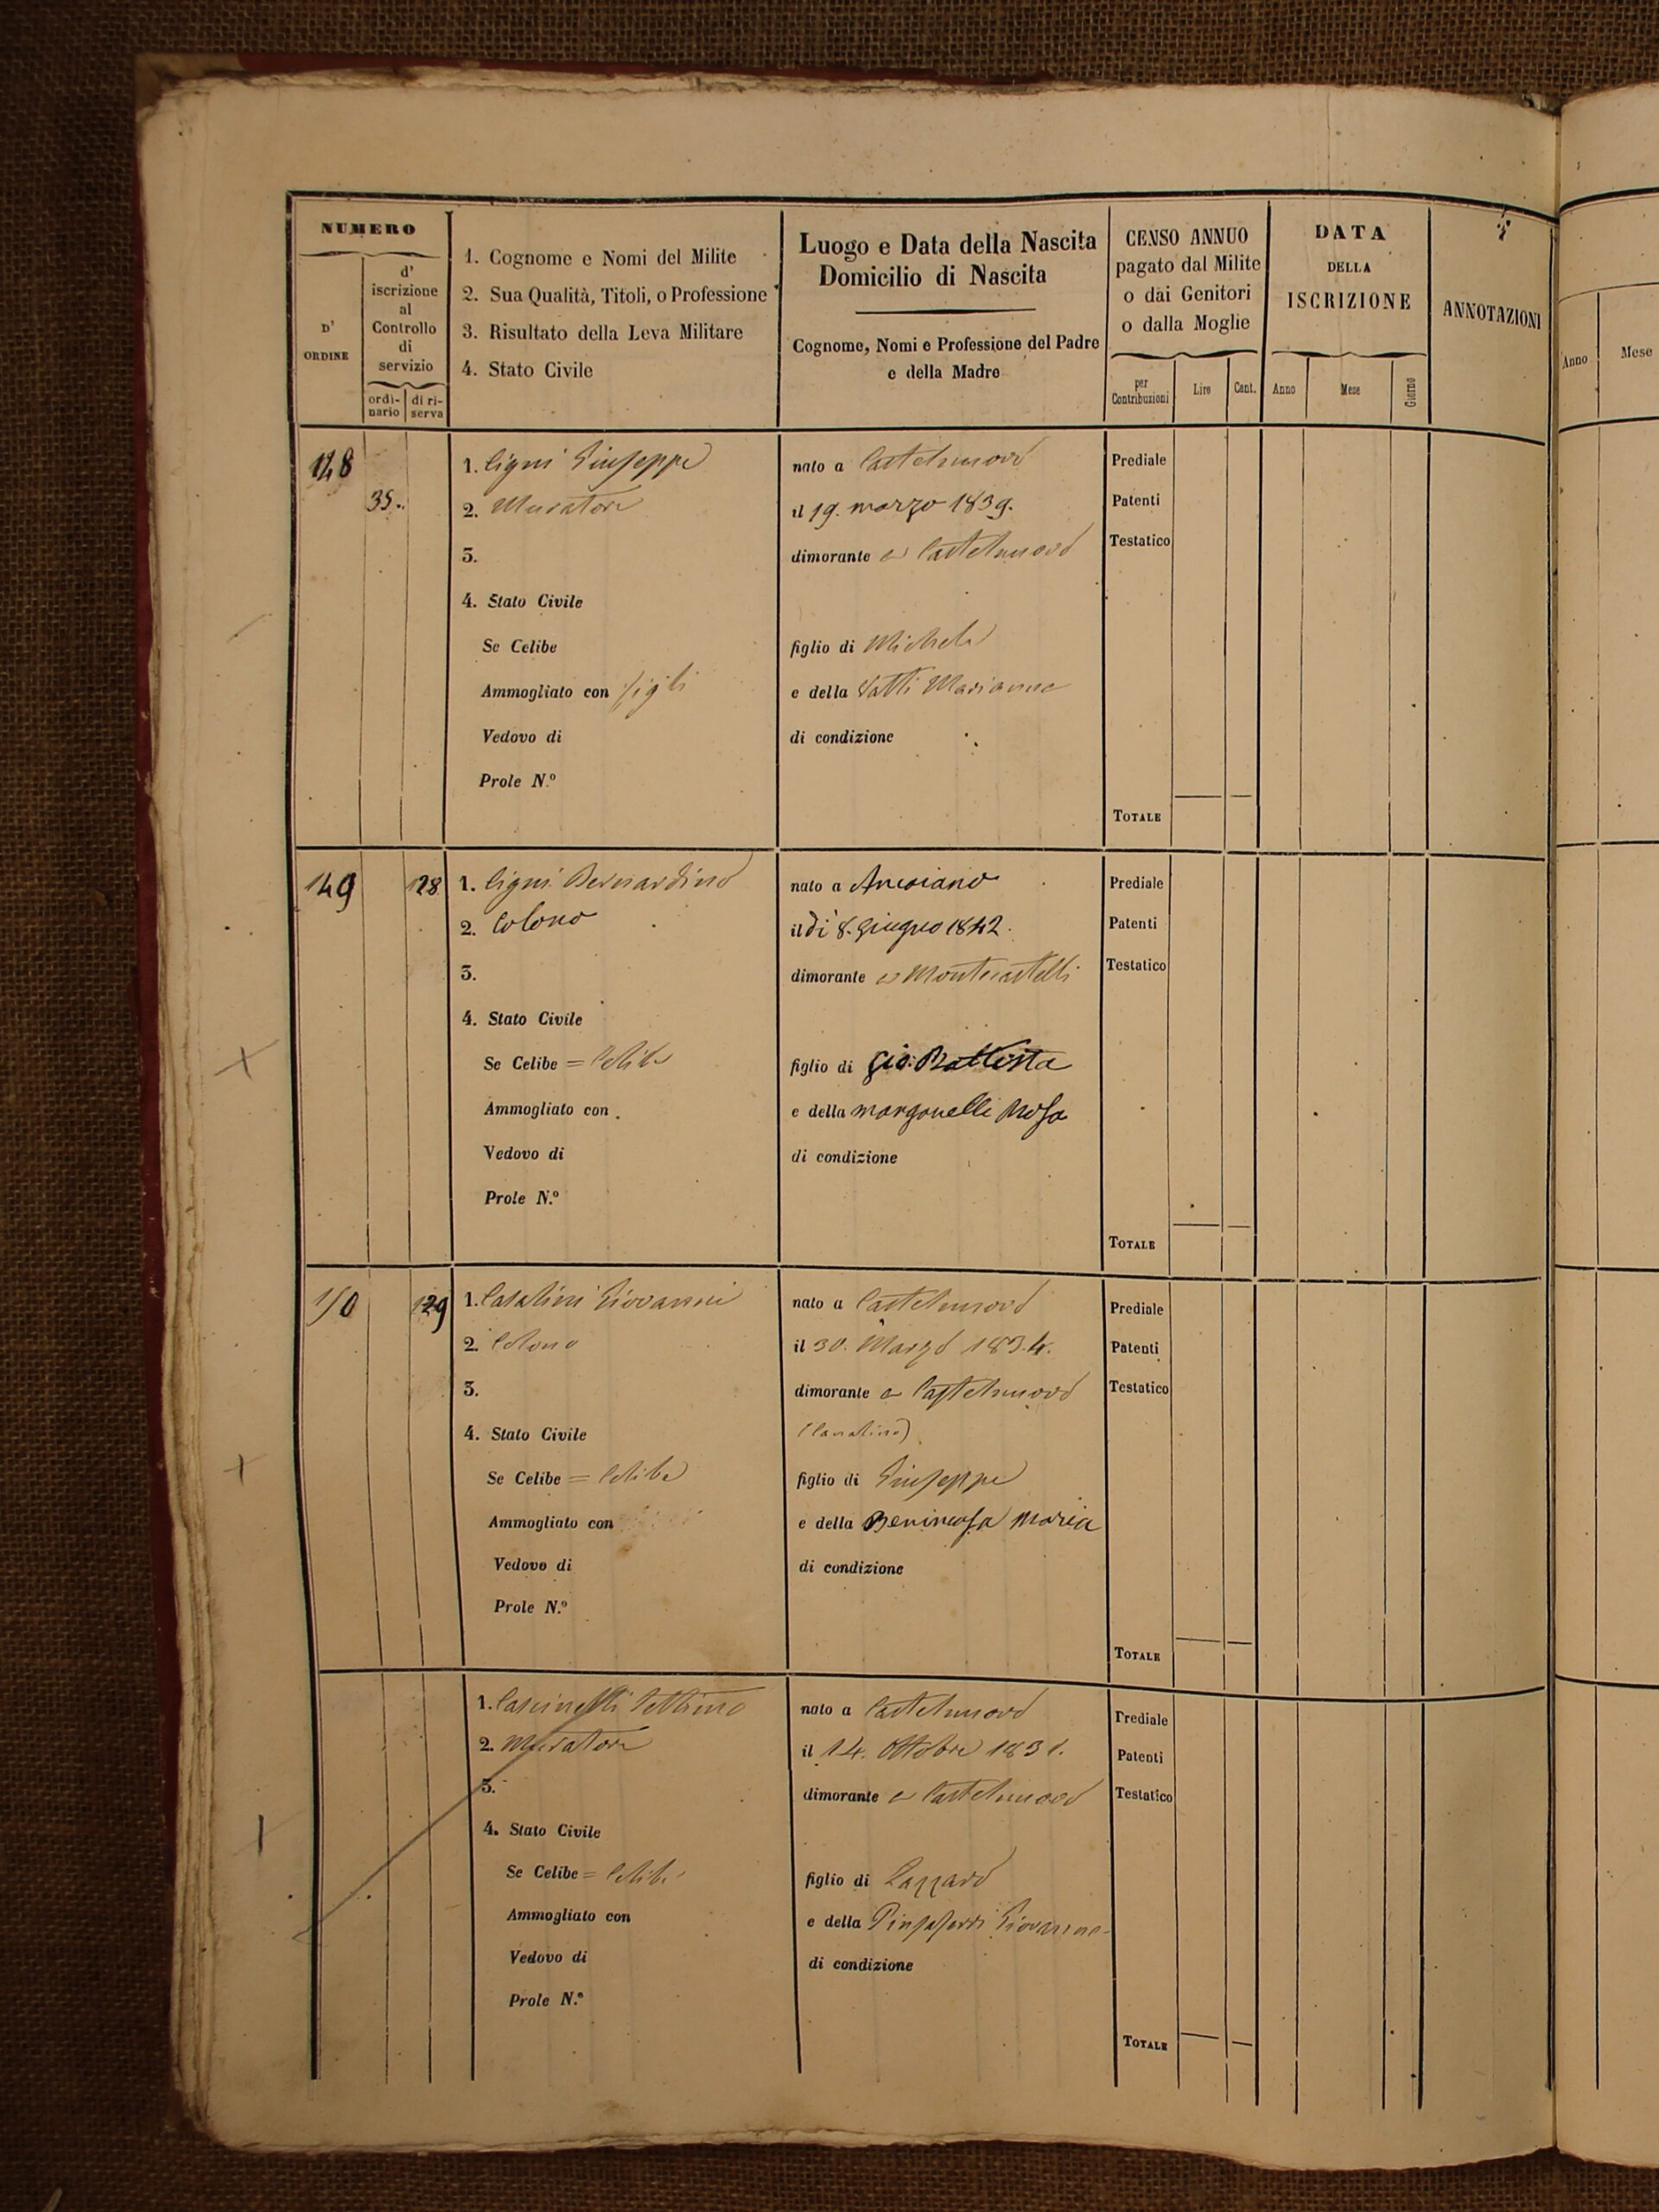 NUMERO
D'
ORDINE
d'
iscrizione
al
Controllo
di
servizio
ordi-
nario
di ri-
serva
1. Cognome e Nomi del Milite
2. Sua Qualità, Titoli, o Professione
3. Risultato della Leva Militare
4. Stato Civile
Luogo e Data della Nascita
Domicilio di Nascita
Cognome, Nomi e Professione del Padre
e della Madre
CENSO ANNUO
pagato dal Milite
o dai Genitori
o dalla Moglie
per
Contribuzioni
Lire
Cent.
DATA
DELLA
ISCRIZIONE
Anno
Mese
Giorno
ANNOTAZIONI
Anno
Mese
148
35.
1. Cigni Giuseppe
2. Muratore
3.
4. Stato Civile
Se Celibe
Ammogliato con figli
Vedovo di
Prole N.º
nato a Castelnuovo
il 19. marzo 1839.
dimorante a Castelnuovo
figlio di Michele
e della Marianna
di condizione
Prediale
Patenti
Testatico
TOTALE
149
128
1. Cigni Bernardino
2. Colono
3.
4. Stato Civile
Se Celibe = Celibe
Ammogliato con
Vedovo di
Prole N.º
nato a Anciano
il dì 8. Giugno 1842.
dimorante a Montecastelli
figlio di Gio: Battista
e della Rosa
di condizione
Prediale
Patenti
Testatico
TOTALE
150
129
1. Casalini Giovanni
2. Colono
3.
4. Stato Civile
Se Celibe = Celibe
Ammogliato con
Vedovo di
Prole N.º
nato a Castelnuovo
il 30. Marzo 1834.
dimorante a Castelnuovo
figlio di Giuseppe
e della Benincasa Maria
di condizione
Prediale
Patenti
Testatico
TOTALE
1. Cascinelli Settimo
2. Muratore
3.
4. Stato Civile
Se Celibe = Celibe
Ammogliato con
Vedovo di
Prole N.º
nato a Castelnuovo
il 14. Ottobre 1831.
dimorante a Castelnuovo
figlio di Lazzaro
e della Giovanna
di condizione
Prediale
Patenti
Testatico
TOTALE